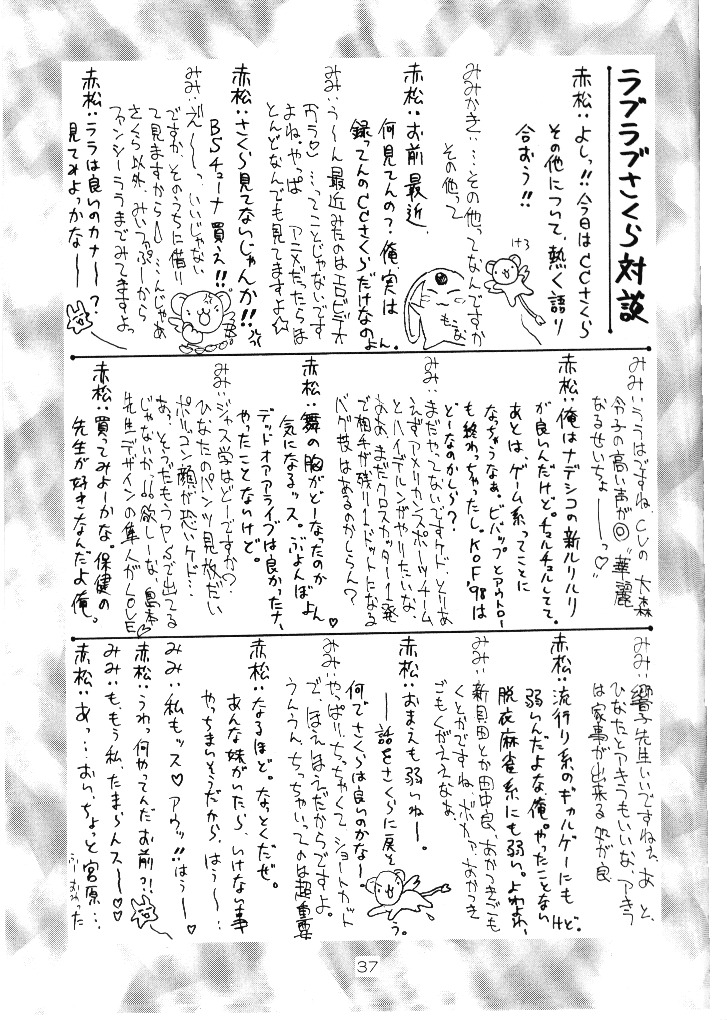 ラブラブさくら対談
赤松：よしっ!!今日はCCさくら
その他について、熱く語り
合おう!!
けろ
みみかき：…その他ってなんですか
その他って
もこな
赤松：お前最近、
何見てんの？俺、実は
録ってんのCCさくらだけなのよん。
みみ：う〜ん最近みたのはエロビデオ
…ってことじゃないです
よね。やっぱ アニメだったらほ
とんどなんでも見てますよ☆
赤松：さくら見てないじゃんか!!
BSチューナ買え!!
みみ：え〜っ、いいじゃない
ですか、そのうちに借り
て見ますから…んじゃあ
さくら以外、みいファぷーから
ファンシーララまでみてますよ
赤松：ララは良いのカナ〜？
見てみよっかな〜
みみ：ララはですね、CVの大森
令子の高い声が◎ "華麗
なるせいちょ——っ♡"
赤松：俺はナデシコの新ルリルリ
が良いんだけど。チュルチュルしてて。
あとは、ゲーム系ってことに
なっちゃうなぁ。ビバップとアウトロー
も終わっちゃったし。KOF98は
どーなのかしら？
みみ：まだやってないですケド、とりあ
えずアメリカンスポーツチーム
とハイデルンがやりたいな、
ああ、まだクロスカッター1発
で相手が残り1ドットになる
バグ技はあるのかしらん？
赤松：舞の胸がどーなったのか
気になるッス。ぷよんぽよん♡
デッドオアアライブは良かったナ、
やったことないけど。
みみ：ジャス学はどーですか？
ひなたのパンツ見放だい
ポリゴン顔が恐いケド…
あっ、そうだもうPSで出てる
じゃないか!!欲しーな、島本
先生デザインの隼人がLOVE♡
赤松：買ってみよーかな。保健の
先生が好きなんだよ俺。
みみ：響子先生いいですねぇ、あと、
ひなたとアキラもいいな、アキラ
は家事が出来る処が良
赤松：流行り系のギャルゲーにも
弱いんだよな、俺。やったことないけど。
脱衣麻雀系にも弱い。よわよわ、
みみ：新貝田とか田中良、あかつきごも
くとかですね、ボカァ、あかつき
ごもくがええなぁ
赤松：おまえも弱いねー。
——話をさくらに戻そう。
何でさくらは良いのかなー
みみ：やっぱり、ちっちゃくて ショートカット
で、ほえほえだからですよ。
うんうん、ちっちゃいってのは超重要
赤松：なるほど。なっとくだぜ。
あんな妹がいたら、いけない事
やっちまいそうだから、はぅ〜…
みみ：私もッス♡アウッ!!はぅー♡
赤松：うわっ何やってんだお前?!
みみ：も、もう私、たまらんス〜♡♡
赤松：あっ…おい、ちょっと宮原…
37